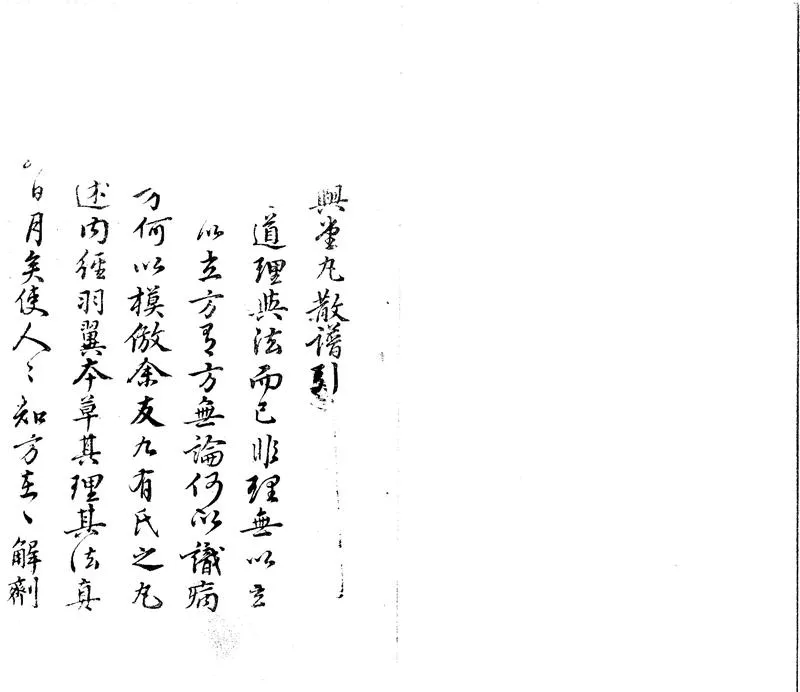 興堂丸散譜引
道理與法而已非理無以立
以立方有方無論何以識病
方何以模倣余友九有氏之丸
述内經羽翼本草其理其法真
日月矣使人〻知方在〻解劑